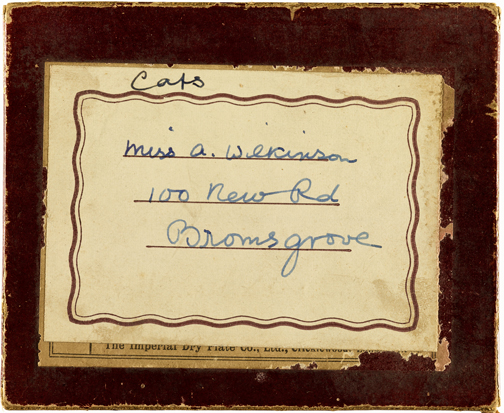 Cats
Miss A. Wilkinson
100 New Rd
Bromsgrove
The Imperial Dry Plate Co., Ltd., Cricklewood.